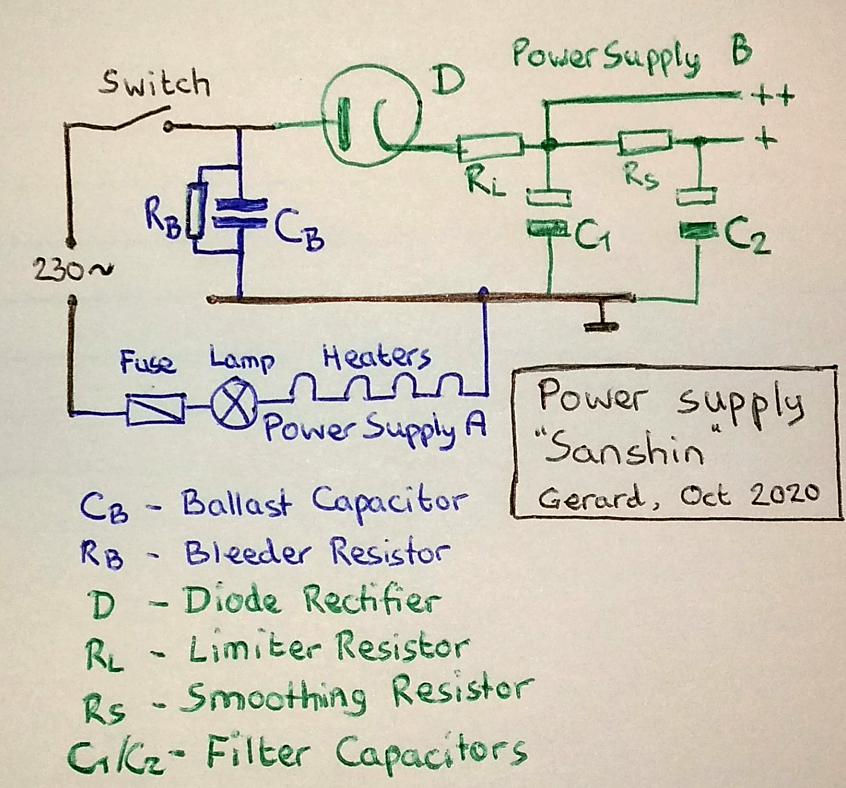 Power Supply B
Switch
D
++
+
RL
RS
RB
CB
C1
C2
230~
Fuse Lamp Heaters
Power Supply A
Power supply
"Sanshin"
Gerard, Oct 2020
CB - Ballast Capacitor
RB - Bleeder Resistor
D - Diode Rectifier
RL - Limiter Resistor
RS - Smoothing Resistor
C1/C2 - Filter Capacitors